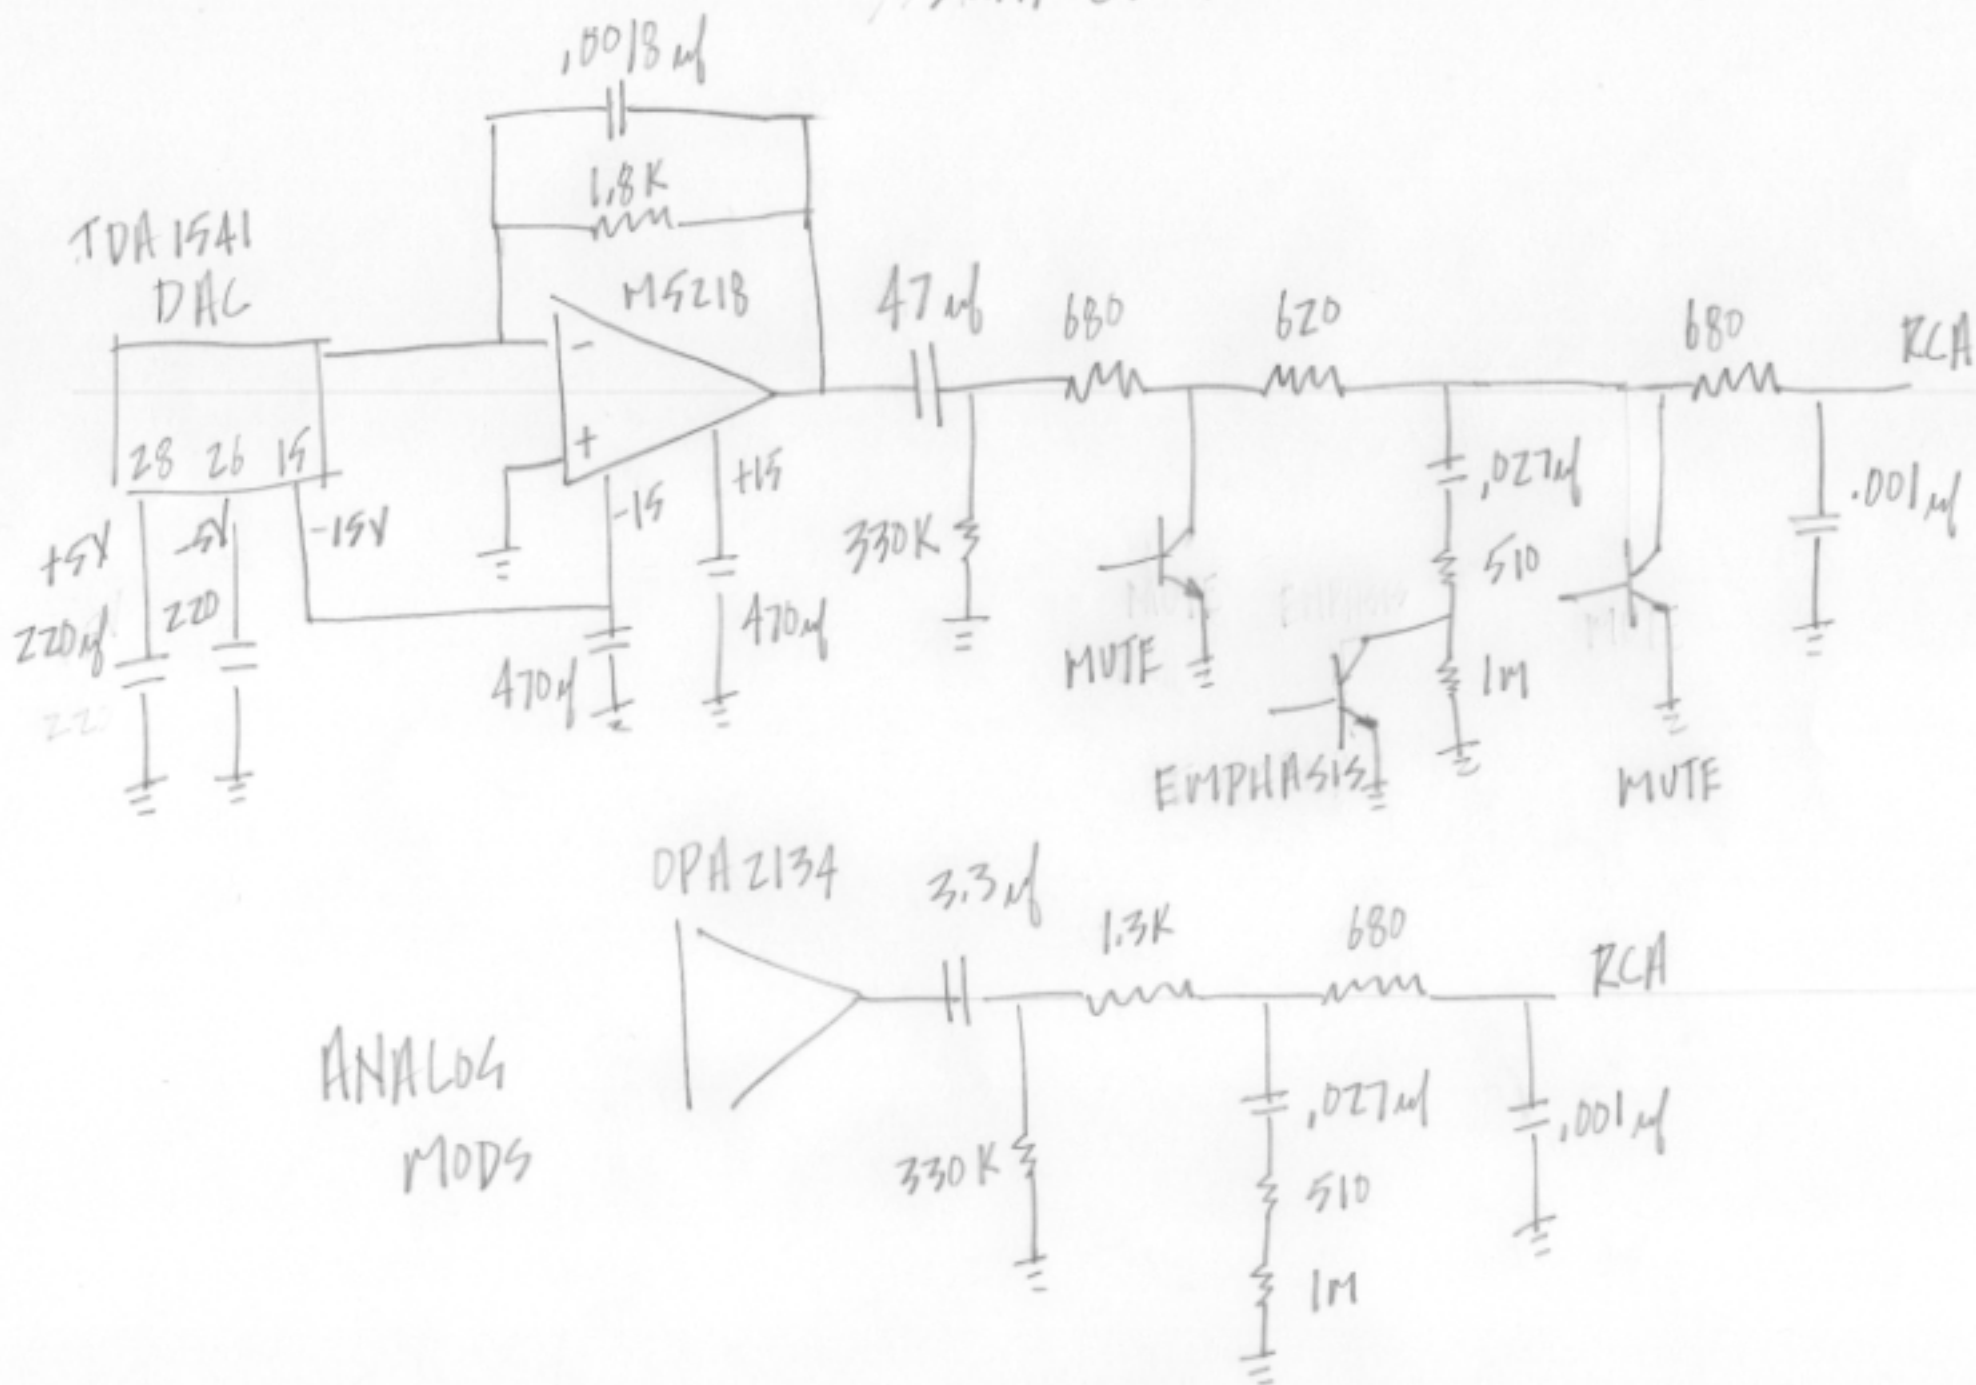 .0018 uf
1.8K
TDA 1541
DAC
M5218
47 uf
680
620
680
RCA
-
+
28 26 15
+5V
-5V
-15V
-15
+15
220uf
220
470uf
470uf
330K
.027uf
510
1M
.001uf
MUTE
EMPHASIS
MUTE
OPA 2134
3.3 uf
1.3K
680
RCA
ANALOG
MODS
330K
.027uf
510
1M
.001uf